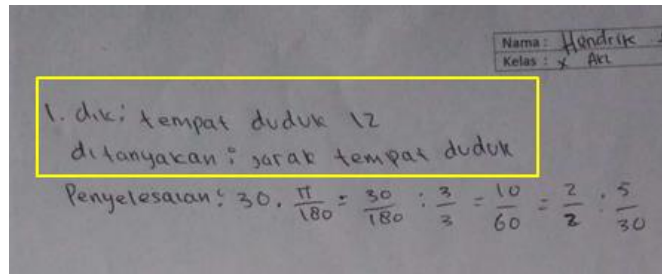 Nama : Hendrik
Kelas : X AKL
1. dik: tempat duduk 12
ditanyakan : jarak tempat duduk
Penyelesaian : 30 . π/180 = 30/180 : 3/3 = 10/60 = 2/2 : 5/30